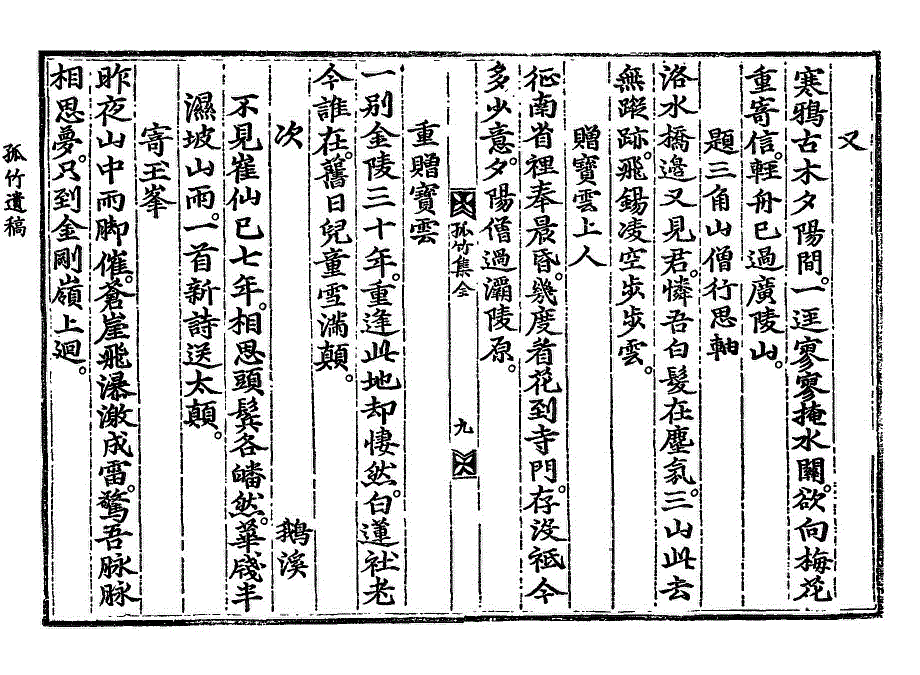 又
寒鴉古木夕陽間。一逕寥寥掩水關。欲向梅花
重寄信。輕舟已過廣陵山。
題三角山僧行思軸
洛水橋邊又見君。憐吾白髮在塵氛。三山此去
無蹤跡。飛錫凌空步步雲。
贈寶雲上人
征南省裡奉晨昏。幾度看花到寺門。存沒祗今
多少意。夕陽僧過灞陵原。
重贈寶雲
孤竹集全
九
一別金陵三十年。重逢此地却悽然。白蓮社老
今誰在。舊日兒童雪滿顛。
次 鵝溪
不見崔仙已七年。相思頭鬂各皤然。華牋半
濕坡山雨。一首新詩送太顛。
寄玉峯
昨夜山中雨脚催。蒼崖飛瀑激成雷。驚吾脉脉
相思夢。只到金剛嶺上迴。
孤竹遺稿